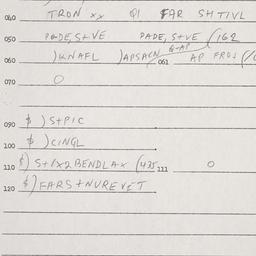 040 TRON xx Q1 FAR SHTIVL
050 PADE, S+VE PADE, S+VE (162
G-AP
060 )KNAFL )APSACN 061 AP FROJ
070 O
090 $ ) S+PIC
100 $ ) CINGL
110 $) S+1X2 BENDLAX (435 111 O
120 $) FARS+NUREVET